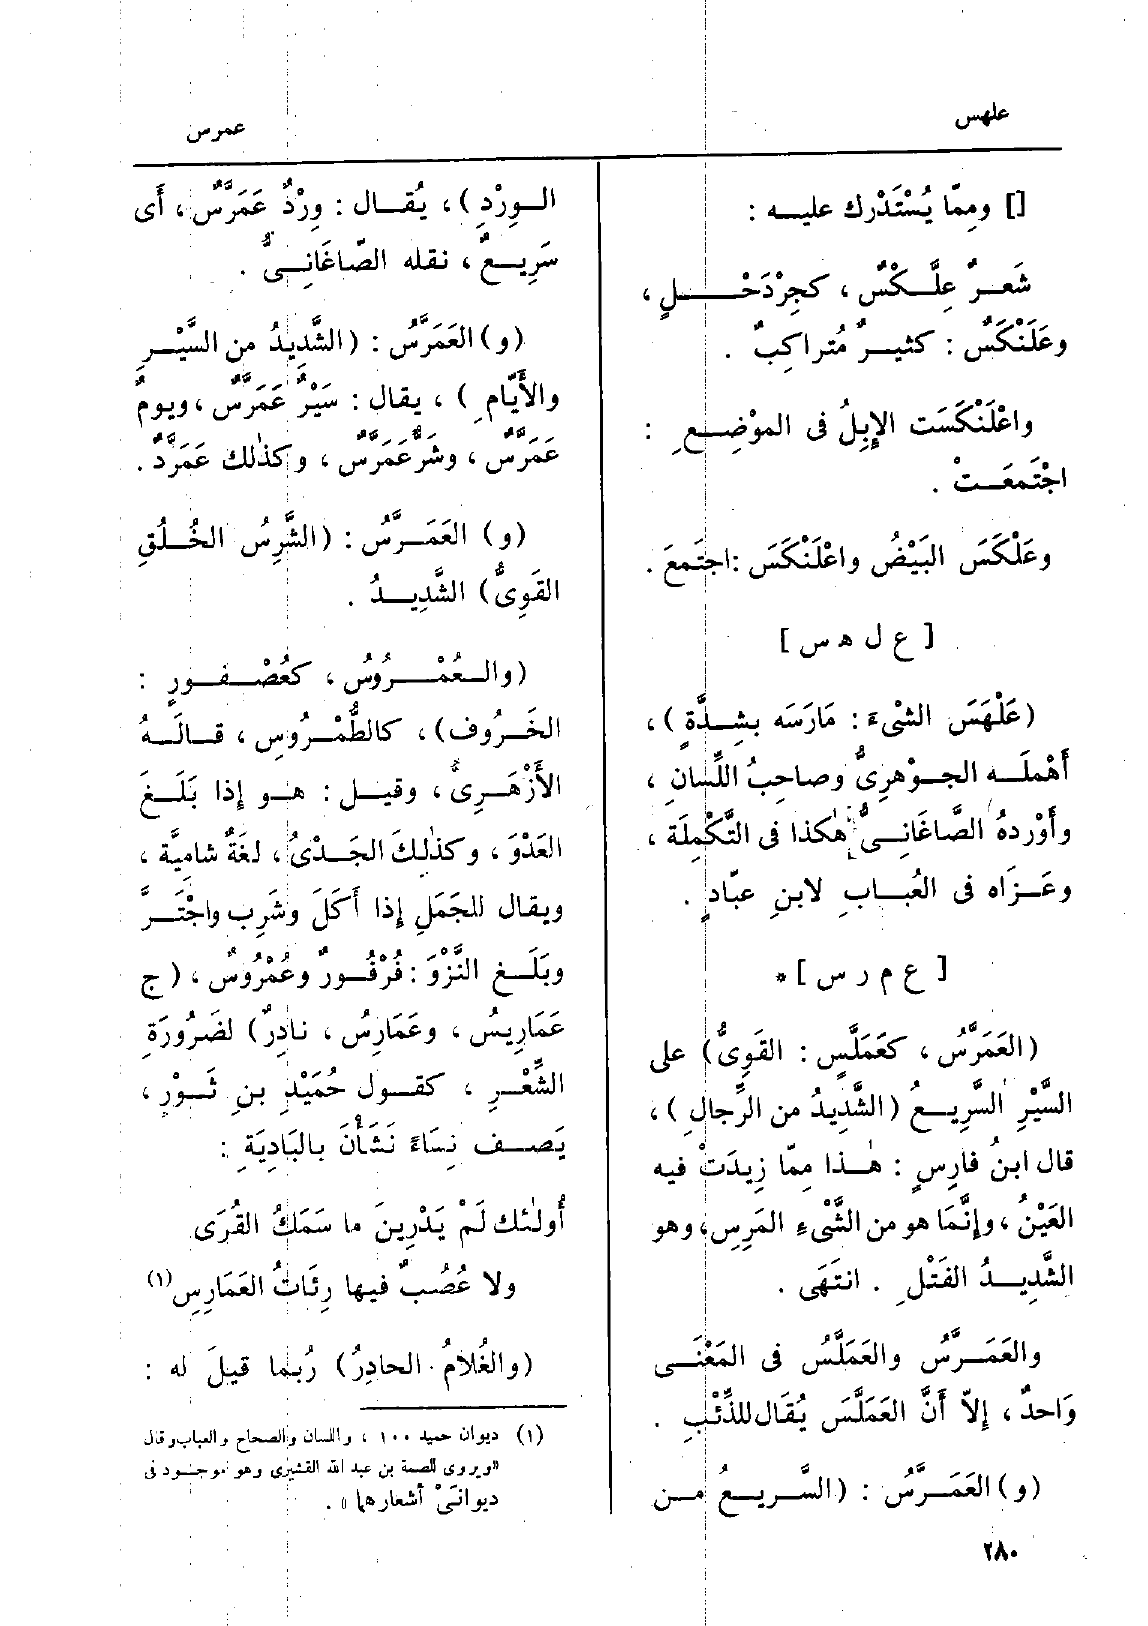 علهس
عمرس
[] ومِمّا يُسْتَدْرك عليـه :
شَعـرٌ عِلَّـكْسٌ ، كجِرْدَحْــلٍ ،
وعَلَنْكَسٌ : كثيـرٌ مُتراكِبٌ .
واعْلَنْكَسَت الإِبِلُ فى الموْضِـعِ :
اجْتَمعَـتْ .
وعَلْكَسَ البَيْضُ واعْلَنْكَسَ :اجتَمعَ .
[ ع ل هـ س ]
(عَلْهَسَ الشىْءَ : مَارَسَه بِشِدَّةٍ ) ،
أَهْملَـه الجـوْهرِىُّ وصاحِبُ اللِّسَانِ ،
وأَوْردهُ الصَّاغَانِـىُّ هٰكذا فى التَّكْمِلَة ،
وعَـزَاه فى العُبـابِ لابنِ عبّادٍ .
[ ع م ر س ] *
(العَمَرَّسُ ، كعَمَلَّسٍ : القَوِىُّ) على
السَّيْرِ السَّرِيـعُ (الشَّدِيدُ من الرِّجالِ ) ،
قال ابنُ فارِسٍ : هٰـذا مِمّا زِيدَتْ فيه
العَيْنُ ، وإِنَّمَا هو من الشَّىْءِ المَرِسِ، وهو
الشَّدِيـدُ الفَتْلِ . انتَهَى .
والعَمَـرَّسُ والعَمَلَّسُ فى المَعْنَـى
وَاحدٌ ، إِلاّ أَنَّ العَمَلَّسَ يُقَال للذِّئْبِ .
(و) العَمَـرَّسُ : (السَّـرِيـعُ مـن
الـوِرْدِ ) ، يُقـال : وِرْدٌ عَمَرَّسٌ ، أَى
سَرِيـعٌ ، نقله الصّاغَانِـىُّ .
(و) العَمَرَّسُ : (الشَّدِيدُ من السَّيْـرِ
والأَيّامِ ) ، يقال : سَيْرٌ عَمَرَّسٌ ، ويومٌ
عَمَرَّسٌ ، وشَرٌّ عَمَرَّسٌ ، وكذٰلك عَمَرَّدٌ .
(و) العَمَـرَّسُ : (الشَّرِسُ الخُـلُقِ
القَوِىُّ) الشَّدِيـدُ .
(والـعُمْـرُوسُ ، كعُصْـفـورٍ :
الخَـرُوف) ، كالطُّمْـرُوسِ ، قـالَـهُ
الأَزْهَـرِىُّ ، وقيـل : هـو إذا بَلَـغ
العَدْوَ ، وكذٰلكَ الجَـدْىُ ، لغَةٌ شامِيَّة ،
ويقال للجَمَلِ إِذا أَكَلَ وشَرِب واجْتَـرَّ
وبَلَـغ النَّزْوَ : فُرْفُـورٌ وعُمْرُوسٌ ، (ج
عَمَارِيسُ ، وعَمَارِسُ ، نادِرٌ) لضَرُورَةِ
الشِّعْـرِ ، كقـول حُمَيْدِ بنِ ثَـوْرٍ ،
يَصـف نِسَاءً نَشَأْنَ بالبَادِيَةِ :
أُولٰئك لَمْ يَدْرِينَ ما سَمَكُ القُرَى
ولا عُصُبٌ فيها رِئَاتُ العَمَارِسِ (١)
(والغُلامُ الحادِرُ) رُبما قيلَ له :
(١) ديوان حميد ١٠٠ ، واللسان والصحاح والعباب وقال
«ويروى للصمة بن عبد الله القشيرى وهو موجـود فى
ديوانَىْ أشعارهما » .
٢٨٠